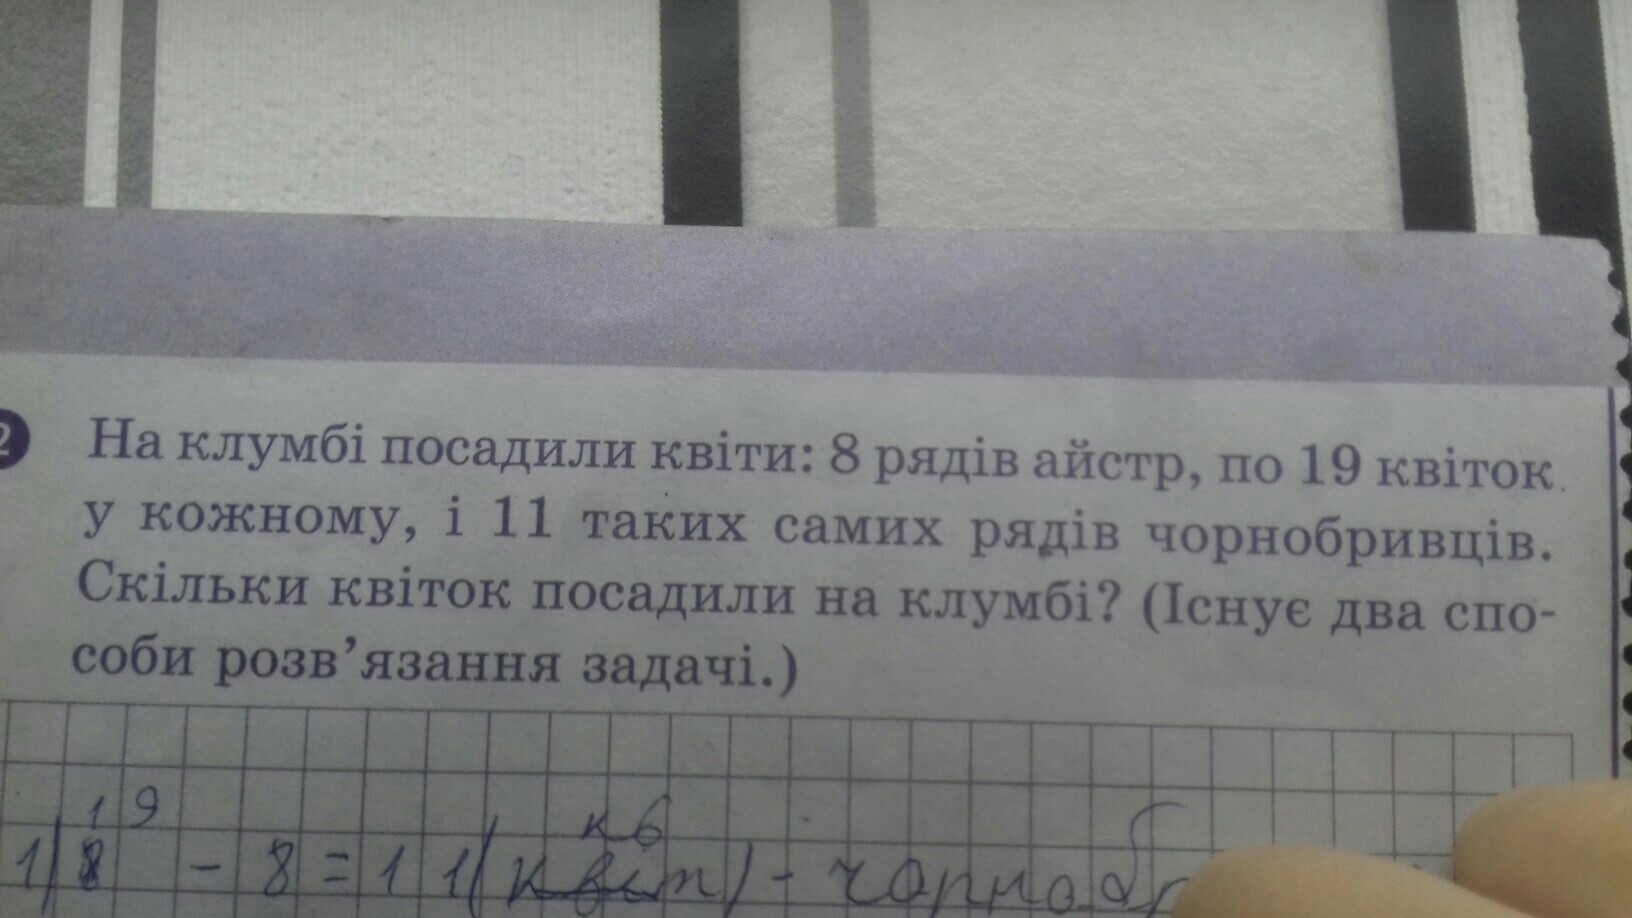 2 На клумбі посадили квіти: 8 рядів айстр, по 19 квіток
у кожному, і 11 таких самих рядів чорнобривців.
Скільки квіток посадили на клумбі? (Існує два спо-
соби розв’язання задачі.)
19 кв
1) 8 - 8 = 11 (квіт) - чорнобр